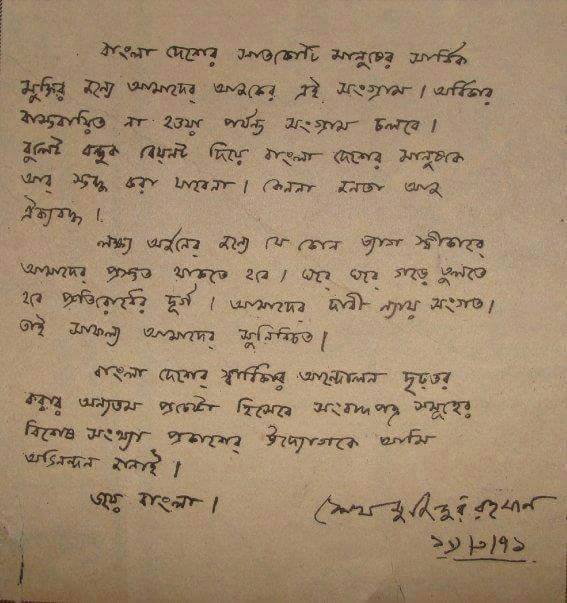 বাংলা দেশের সাতকোটি মানুষের সার্বিক
মুক্তির জন্যে আমাদের আজকের এই সংগ্রাম। অধিকার
বাস্তবায়িত না হওয়া পর্যন্ত সংগ্রাম চলবে।
বুলেট বন্দুক বেয়নট দিয়ে বাংলা দেশের মানুষকে
আর স্তব্ধ করা যাবেনা। কেননা জনতা আজ
ঐক্যবদ্ধ।
লক্ষ্য অর্জনের জন্যে যে কোন ত্যাগ স্বীকারে
আমাদের প্রস্তুত থাকতে হবে। ঘরে ঘরে গড়ে তুলতে
হবে প্রতিরোধের দূর্গ। আমাদের দাবী ন্যায় সংগত।
তাই সাফল্য আমাদের সুনিশ্চিত।
বাংলা দেশের স্বাধিকার আন্দোলন দৃঢ়তর
করার অন্যতম প্রচেষ্টা হিসেবে সংবাদপত্র সমূহের
বিশেষ সংখ্যা প্রকাশের উদ্যোগকে আমি
অভিনন্দন জানাই।
জয় বাংলা।
শেখ মুজিবুর রহমান